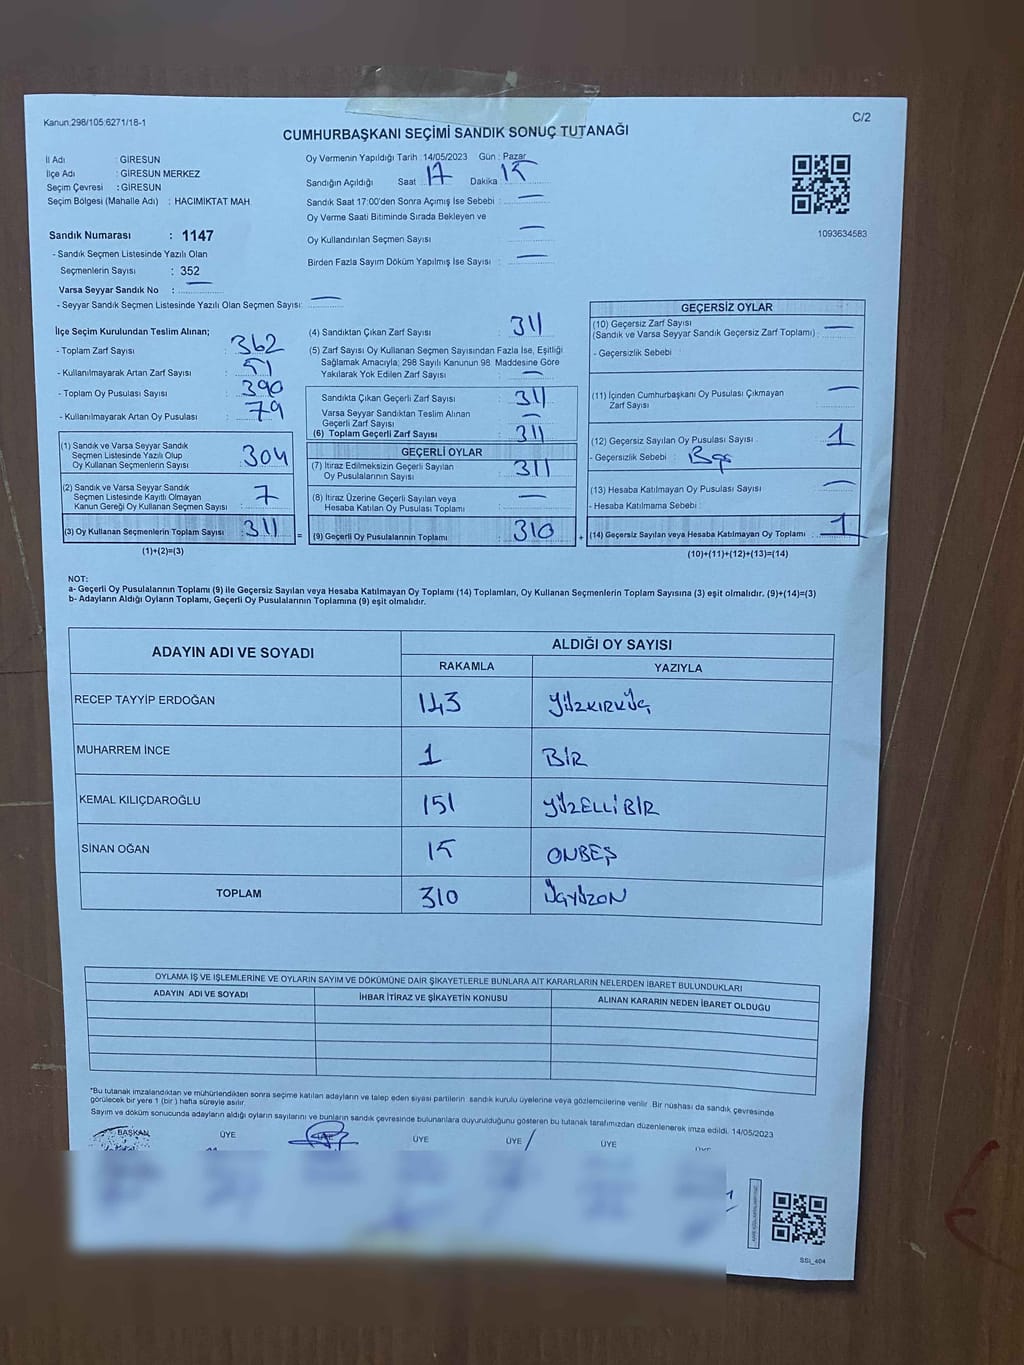 Kanun:298/105 6271/18-1
C/2
CUMHURBAŞKANI SEÇİMİ SANDIK SONUÇ TUTANAĞI
İl Adı : GİRESUN
İlçe Adı : GİRESUN MERKEZ
Seçim Çevresi : GİRESUN
Seçim Bölgesi (Mahalle Adı) : HACIMİKTAT MAH
Sandık Numarası : 1147
- Sandık Seçmen Listesinde Yazılı Olan
Seçmenlerin Sayısı : 352
Varsa Seyyar Sandık No : —
- Seyyar Sandık Seçmen Listesinde Yazılı Olan Seçmen Sayısı: —
Oy Vermenin Yapıldığı Tarih :14/05/2023 Gün : Pazar
Sandığın Açıldığı Saat 17 Dakika 15
Sandık Saat 17:00'den Sonra Açımış İse Sebebi : —
Oy Verme Saati Bitiminde Sırada Bekleyen ve
Oy Kullandırılan Seçmen Sayısı —
Birden Fazla Sayım Döküm Yapılmış İse Sayısı : —
1093634583
İlçe Seçim Kurulundan Teslim Alınan;
- Toplam Zarf Sayısı : 362
- Kullanılmayarak Artan Zarf Sayısı : 51
- Toplam Oy Pusulası Sayısı : 390
- Kullanılmayarak Artan Oy Pusulası : 79
(1) Sandık ve Varsa Seyyar Sandık
Seçmen Listesinde Yazılı Olup
Oy Kullanan Seçmenlerin Sayısı : 304
(2) Sandık ve Varsa Seyyar Sandık
Seçmen Listesinde Kayıtlı Olmayan
Kanun Gereği Oy Kullanan Seçmen Sayısı : 7
(3) Oy Kullanan Seçmenlerin Toplam Sayısı : 311
(1)+(2)=(3)
(4) Sandıktan Çıkan Zarf Sayısı : 311
(5) Zarf Sayısı Oy Kullanan Seçmen Sayısından Fazla İse, Eşitliği
Sağlamak Amacıyla; 298 Sayılı Kanunun 98. Maddesine Göre
Yakılarak Yok Edilen Zarf Sayısı : —
Sandıkta Çıkan Geçerli Zarf Sayısı : 311
Varsa Seyyar Sandıktan Teslim Alınan
Geçerli Zarf Sayısı : —
(6) Toplam Geçerli Zarf Sayısı : 311
GEÇERLİ OYLAR
(7) İtiraz Edilmeksizin Geçerli Sayılan
Oy Pusulalarının Sayısı : 311
(8) İtiraz Üzerine Geçerli Sayılan veya
Hesaba Katılan Oy Pusulası Toplamı : —
= (9) Geçerli Oy Pusulalarının Toplamı : 310
GEÇERSİZ OYLAR
(10) Geçersiz Zarf Sayısı
(Sandık ve Varsa Seyyar Sandık Geçersiz Zarf Toplamı) : —
- Geçersizlik Sebebi :
(11) İçinden Cumhurbaşkanı Oy Pusulası Çıkmayan
Zarf Sayısı : —
(12) Geçersiz Sayılan Oy Pusulası Sayısı : 1
- Geçersizlik Sebebi : Boş
(13) Hesaba Katılmayan Oy Pusulası Sayısı : —
- Hesaba Katılmama Sebebi :
+ (14) Geçersiz Sayılan veya Hesaba Katılmayan Oy Toplamı : 1
(10)+(11)+(12)+(13)=(14)
NOT:
a- Geçerli Oy Pusulalarının Toplamı (9) ile Geçersiz Sayılan veya Hesaba Katılmayan Oy Toplamı (14) Toplamları, Oy Kullanan Seçmenlerin Toplam Sayısına (3) eşit olmalıdır. (9)+(14)=(3)
b- Adayların Aldığı Oyların Toplamı, Geçerli Oy Pusulalarının Toplamına (9) eşit olmalıdır.
ADAYIN ADI VE SOYADI
ALDIĞI OY SAYISI
RAKAMLA YAZIYLA
RECEP TAYYİP ERDOĞAN 143 YÜZKIRKÜÇ
MUHARREM İNCE 1 BİR
KEMAL KILIÇDAROĞLU 151 YÜZELLİBİR
SİNAN OĞAN 15 ONBEŞ
TOPLAM 310 ÜÇYÜZON
OYLAMA İŞ VE İŞLEMLERİNE VE OYLARIN SAYIM VE DÖKÜMÜNE DAİR ŞİKAYETLERLE BUNLARA AİT KARARLARIN NELERDEN İBARET BULUNDUKLARI
ADAYIN ADI VE SOYADI İHBAR İTİRAZ VE ŞİKAYETİN KONUSU ALINAN KARARIN NEDEN İBARET OLDUĞU
*Bu tutanak imzalandıktan ve mühürlendikten sonra seçime katılan adayların ve talep eden siyasi partilerin sandık kurulu üyelerine veya gözlemcilerine verilir. Bir nüshası da sandık çevresinde
görülecek bir yere 1 (bir) hafta süreyle asılır.
Sayım ve döküm sonucunda adayların aldığı oyların sayılarını ve bunların sandık çevresinde bulunanlara duyurulduğunu gösteren bu tutanak tarafımızdan düzenlenerek imza edildi. 14/05/2023
BAŞKAN ÜYE ÜYE ÜYE ÜYE ÜYE
SSİ_404